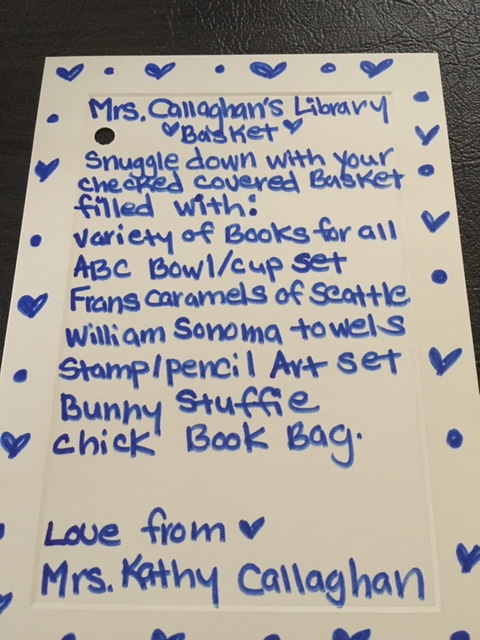 Mrs. Callaghan's Library
Basket
Snuggle down with your
checked covered Basket
filled with:
variety of Books for all
ABC Bowl/cup set
Frans caramels of Seattle
William Sonoma towels
Stamp/pencil Art set
Bunny Stuffie
chick Book Bag.
Love from
Mrs. Kathy Callaghan